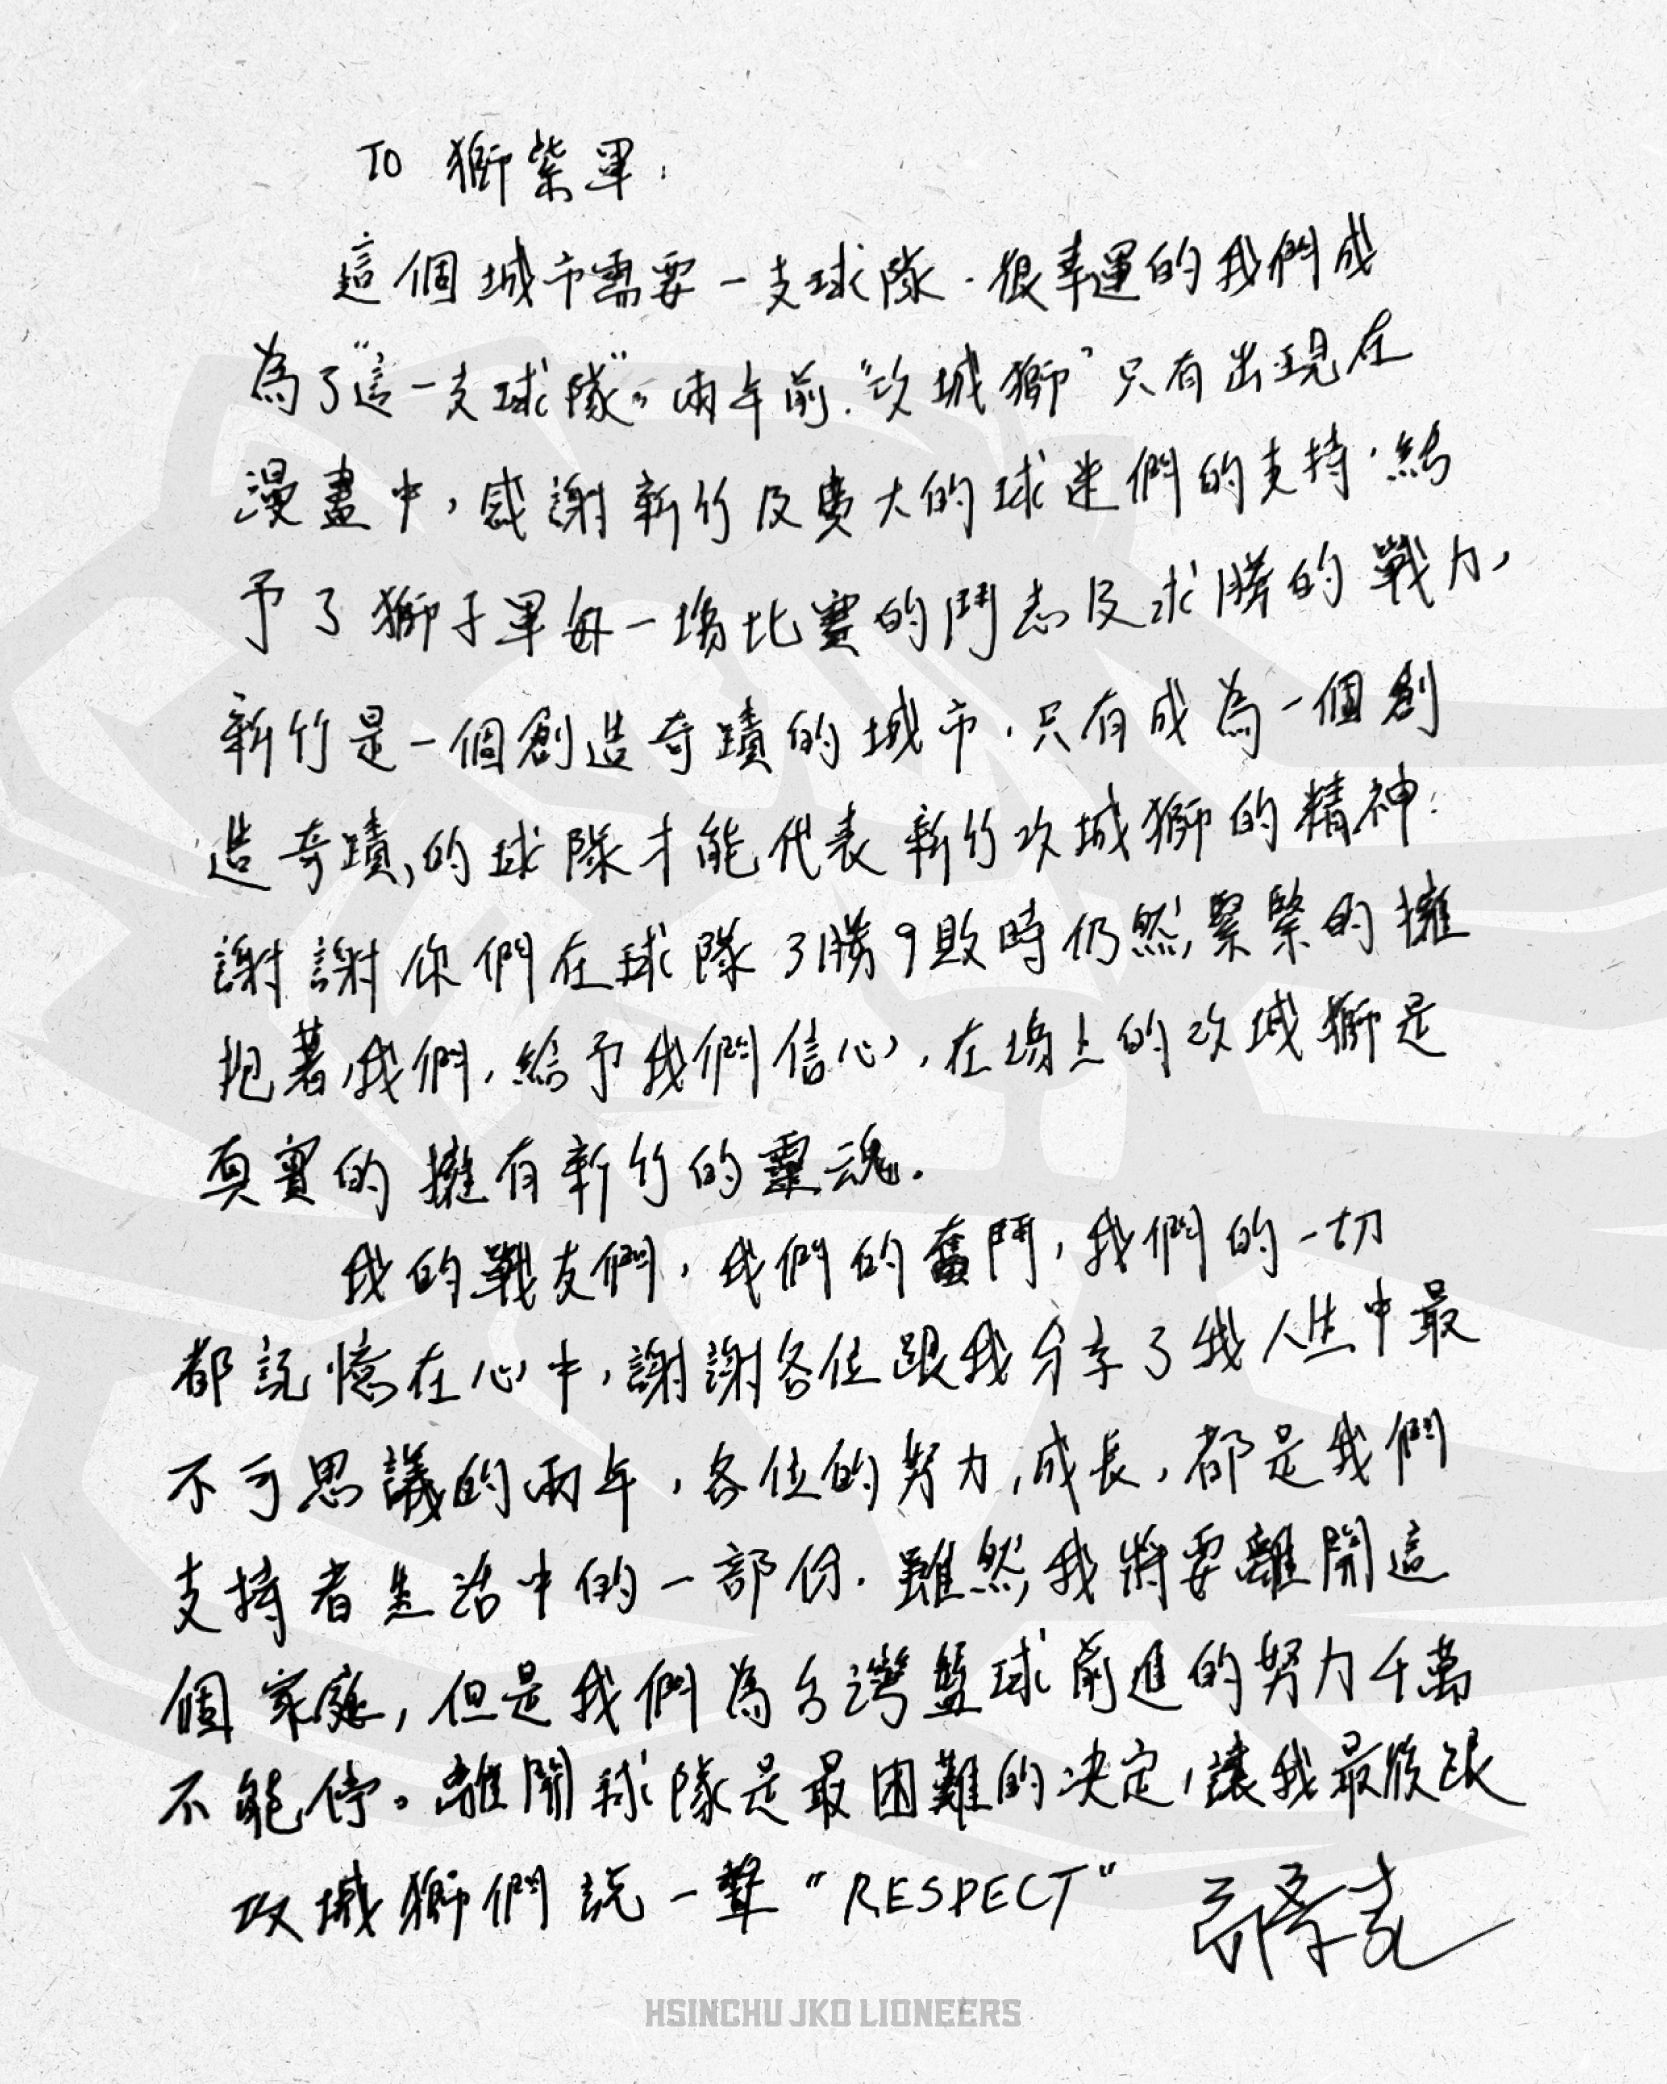 TO 獅紫軍：
這個城市需要一支球隊．很幸運的我們成
為了"這一支球隊"。兩年前."攻城獅"只有出現在
漫畫中，感謝新竹及廣大的球迷們的支持．給
予了獅子軍每一場比賽的鬥志及求勝的戰力，
新竹是一個創造奇蹟的城市．只有成為一個創
造奇蹟的球隊才能代表新竹攻城獅的精神．
謝謝你們在球隊3勝9敗時仍然緊緊的擁
抱著我們，給予我們信心，在場上的攻城獅是
真實的擁有新竹的靈魂．
我的戰友們，我們的奮鬥，我們的一切
都記憶在心中，謝謝各位跟我分享了我人生中最
不可思議的兩年，各位的努力，成長，都是我們
支持者生活中的一部份．雖然我將要離開這
個家庭，但是我們為台灣籃球前進的努力千萬
不能停。離開球隊是最困難的決定，讓我最後跟
攻城獅們說一聲"RESPECT"
HSINCHU JKO LIONEERS